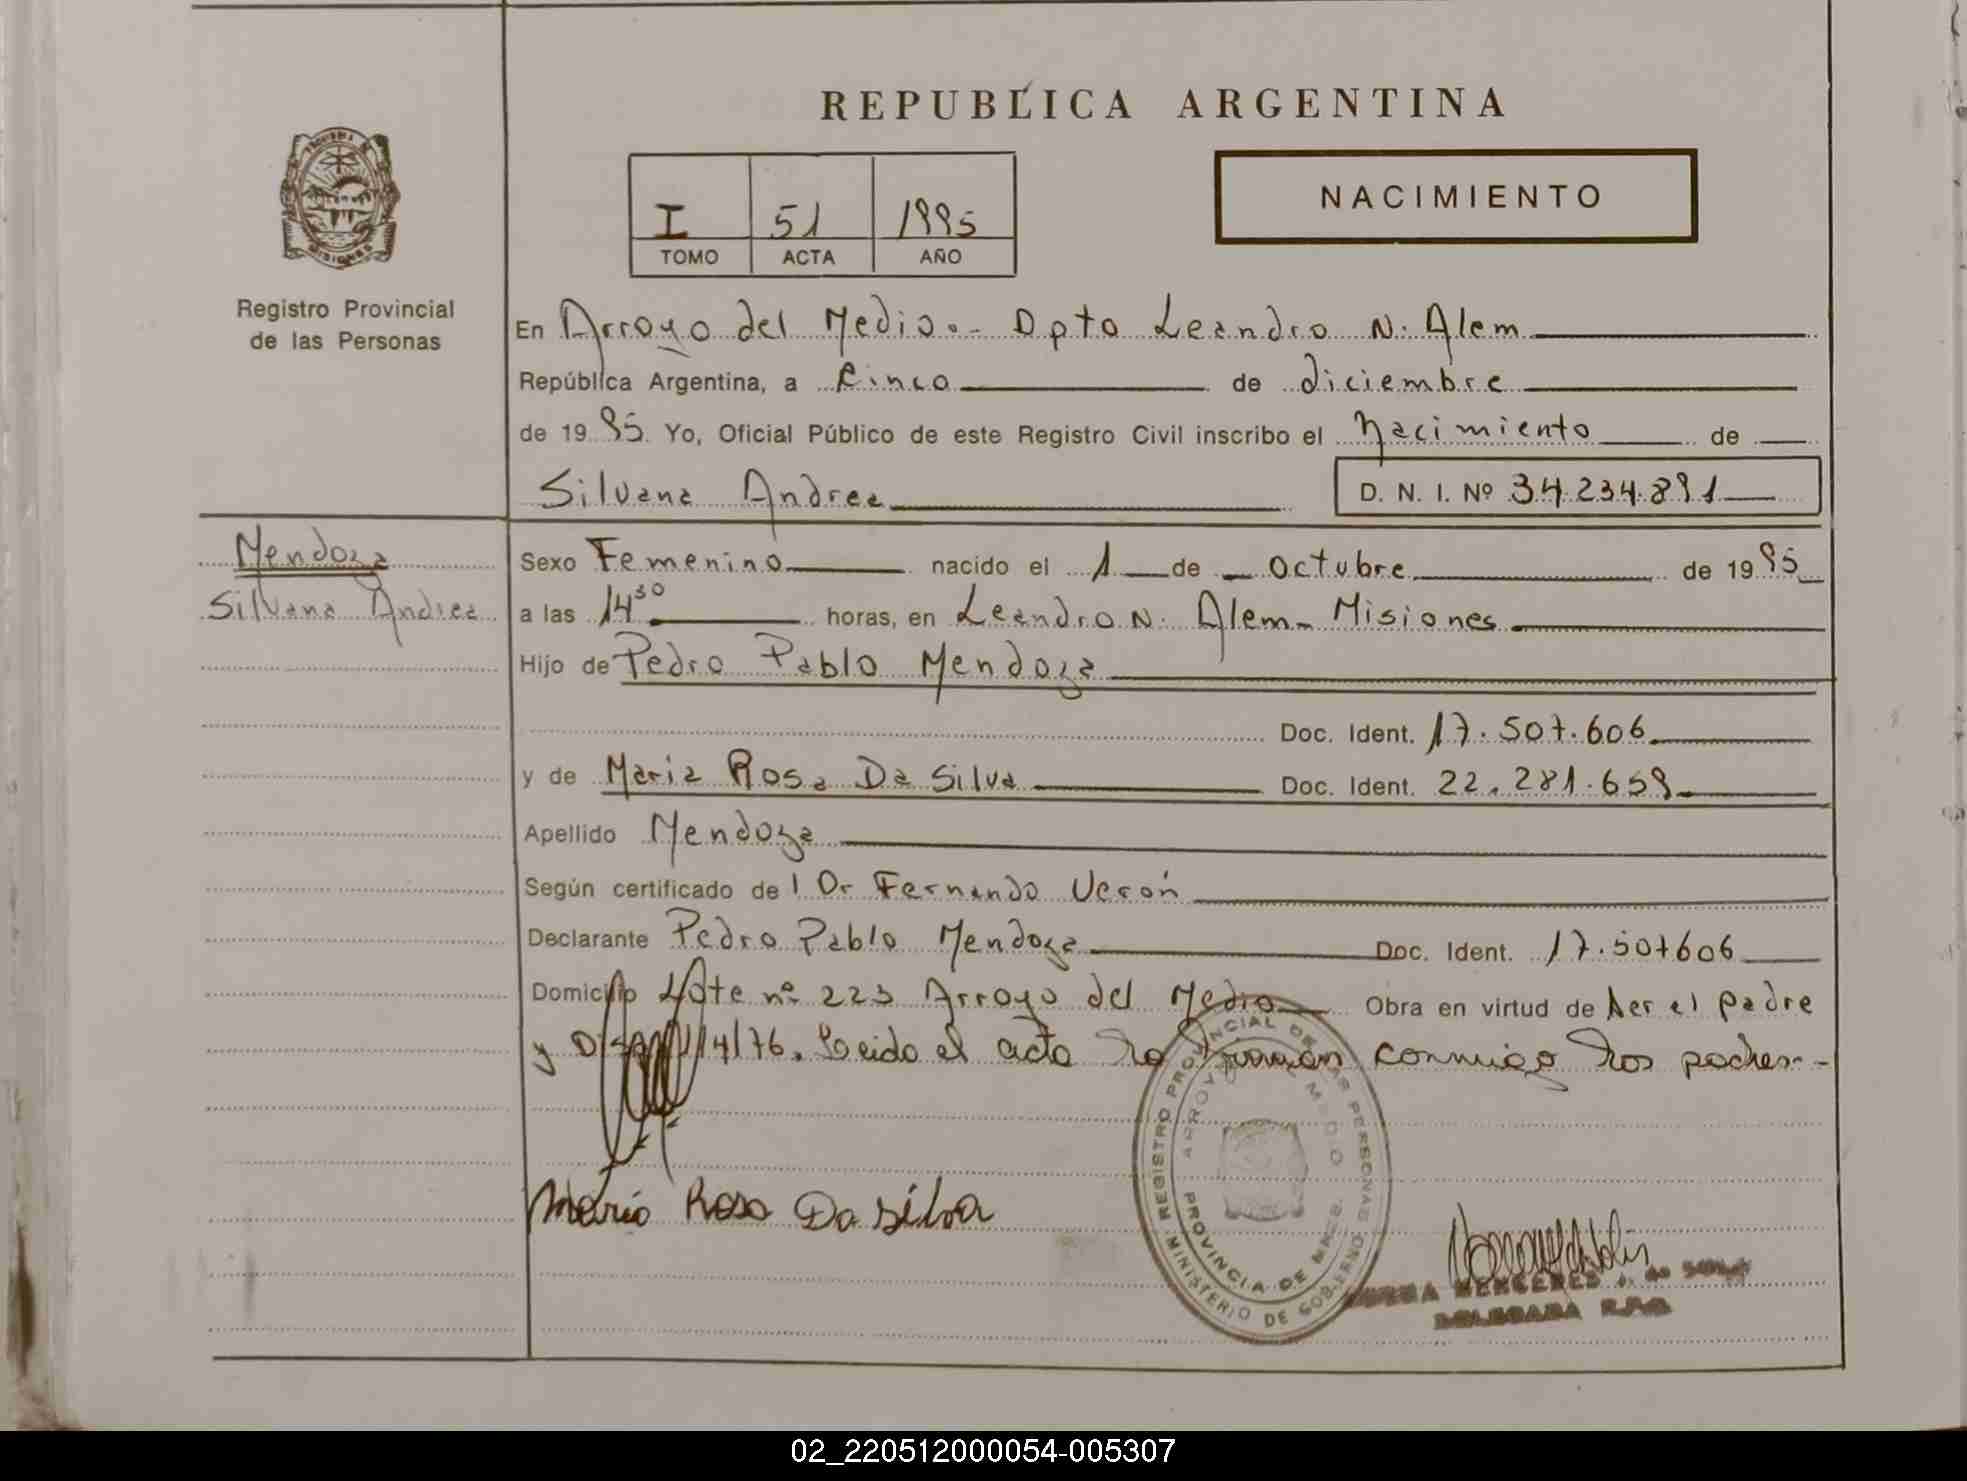 REPUBLICA ARGENTINA
NACIMIENTO
I 51 1995
TOMO ACTA AÑO
PROVINCIA DE MISIONES
Registro Provincial
de las Personas
En Arroyo del Medio.- Dpto Leandro N. Alem
República Argentina, a Cinco de diciembre
de 19 95. Yo, Oficial Público de este Registro Civil inscribo el Nacimiento de
Silvana Andrea D. N. I. Nº 34.234.891
Mendoza
Silvana Andrea
Sexo Femenino nacido el 1 de octubre de 19 95
a las 14³⁰ horas, en Leandro N. Alem - Misiones
Hijo de Pedro Pablo Mendoza
Doc. Ident. 17.507.606
y de Maria Rosa Da Silva Doc. Ident. 22.281.659
Apellido Mendoza
Según certificado de l Dr Fernando Verón
Declarante Pedro Pablo Mendoza Doc. Ident. 17.507606
Domicilio Lote nº 223 Arroyo del Medio Obra en virtud de ser el padre
y /4/76. Leido el acta la firman conmigo los padres.--
Maria Rosa Da Silva
REGISTRO PROVINCIAL DE LAS PERSONAS
MINISTERIO DE GOBIERNO
ARROYO MEDIO
PROVINCIA DE MNES.
MERCEDES
DELEGADA R.P.P.
02_220512000054-005307